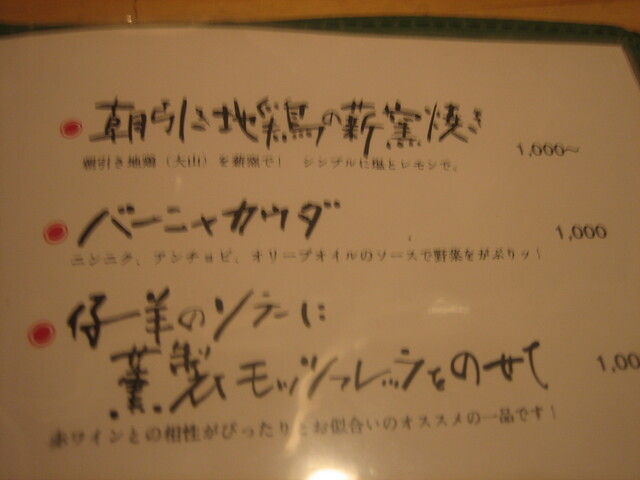 朝引き地鶏の薪窯焼き
朝引き地鶏（大山）を薪窯で！　シンプルに塩とレモンで。
1,000〜
バーニャカウダ
1,000
ニンニク、アンチョビ、オリーブオイルのソースで野菜をがぶりッ！
仔羊のソテーに
薫製モッツァレッラをのせて
1,00
赤ワインとの相性がぴったりとお似合いのオススメの一品です！